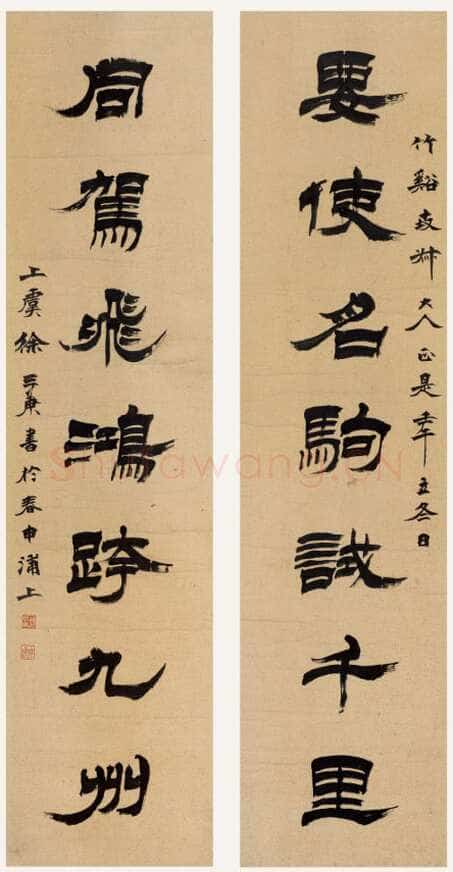 竹谿 大人正是壬午立冬日
要使名駒試千里
同駕飛鴻跨九州
上虞徐三庚書於春申浦上
Shufawang.CN